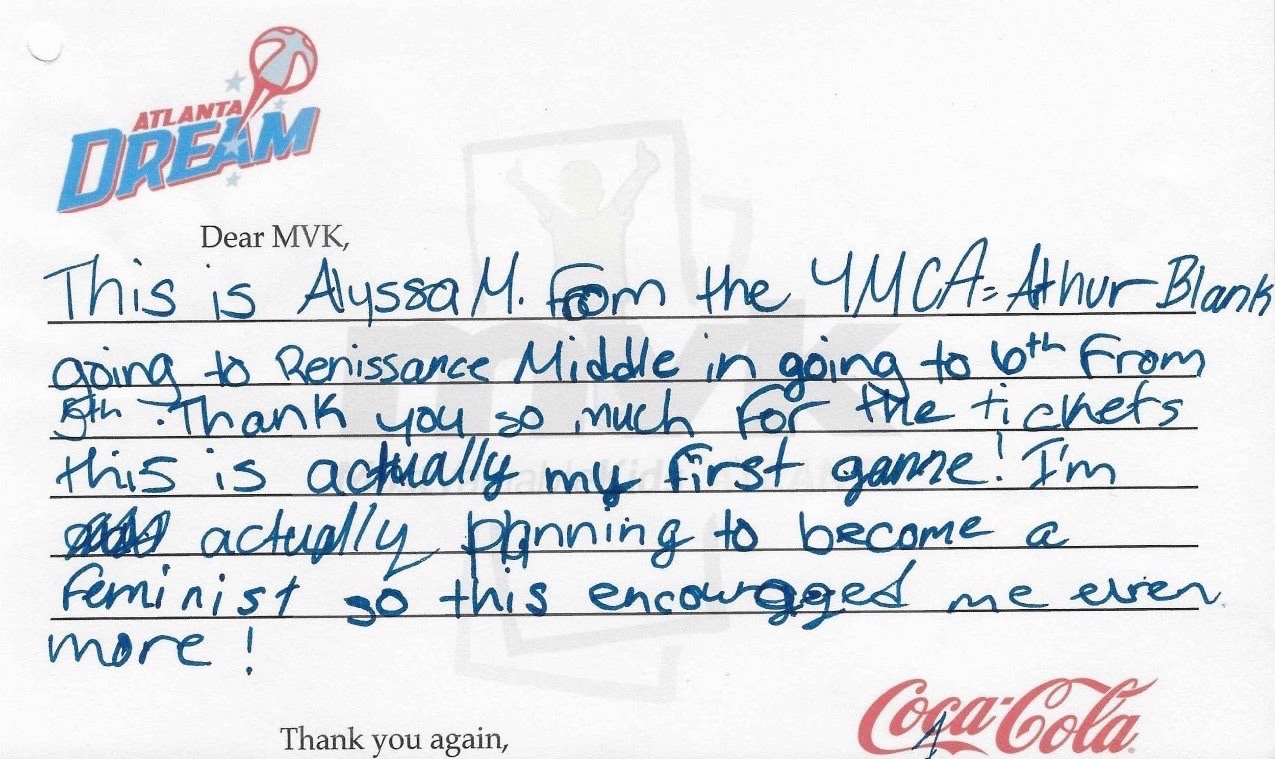 ATLANTA
DREAM
Dear MVK,
This is Alyssa M. from the YMCA = Athur Blank
going to Renissance Middle in going to 6th From
5th. Thank you so much for the tickets
this is actually my first game! I'm
actually planning to become a
feminist so this encouraged me even
more!
Coca-Cola
Thank you again,